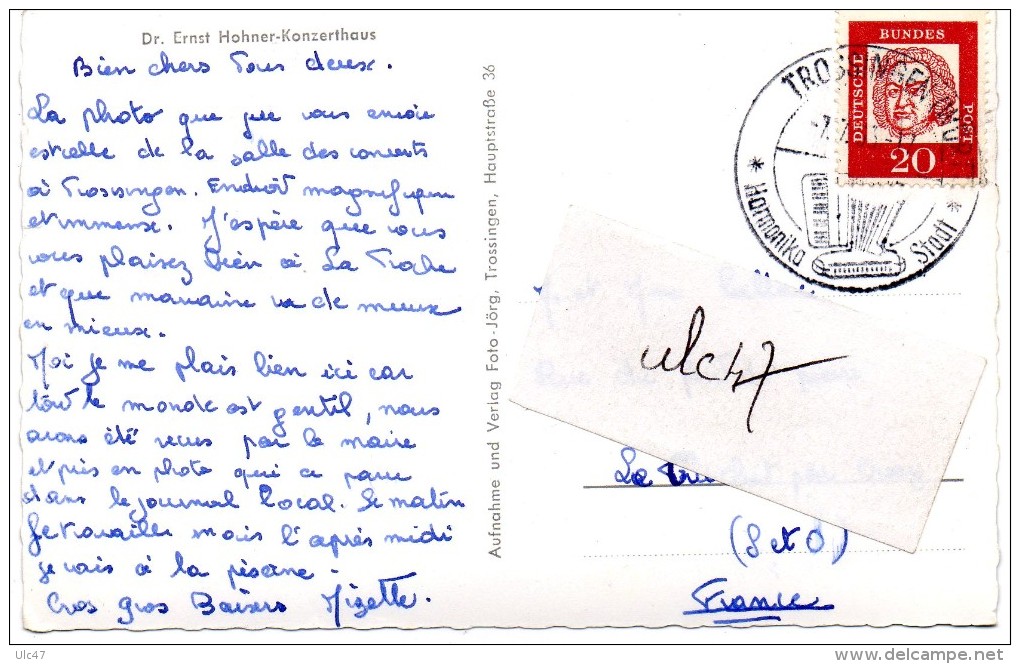 Dr. Ernst Hohner-Konzerthaus
Bien chers Tous deux.
La photo que je vous envoie
est celle de la salle des concerts
à Trossingen. Endroit magnifique
et immense. J'espère que vous
vous plaisez bien à La
et que va de mieux
en mieux.
Moi je me plais bien ici car
tout le monde est gentil, nous
avons été reçus par le maire
et pris en photo qui a paru
dans le journal local. Le matin
je travaille mais l'après midi
je vais à la piscine.
Gros gros Baisers Mizette.
Aufnahme und Verlag Foto-Jörg, Trossingen, Hauptstraße 36
TROSSINGEN
* Harmonika Stadt *
DEUTSCHE BUNDES POST
20
ulc47
Le
(S et O)
France
Ulc47
www.delcampe.net